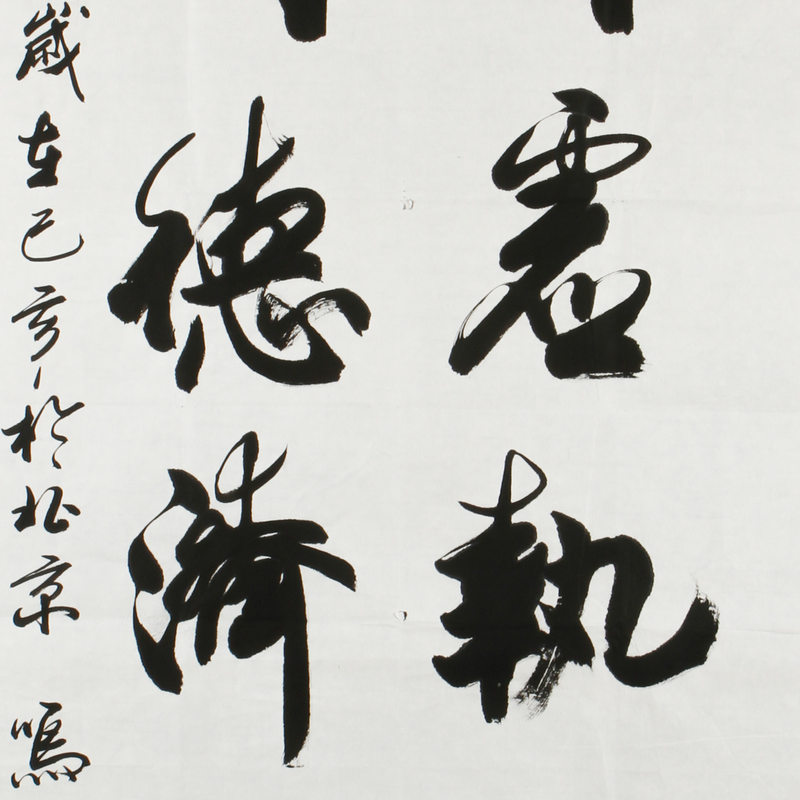 虚執
德濟
歲在己亥於北京 鳴